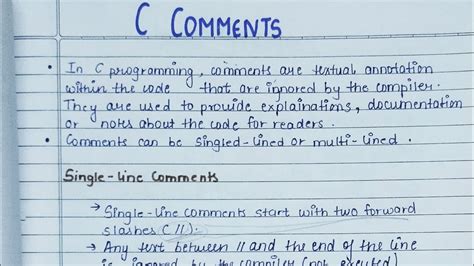 C COMMENTS
• In C programming, comments are textual annotation
within the code that are ignored by the compiler.
They are used to provide explainations, documentation
or notes about the code for readers.
• Comments can be singled-lined or multi-lined.
Single-line Comments
→ Single-line comments start with two forward
slashes (//).
→ Any text between // and the end of the line
is ignored by the compiler (not executed)